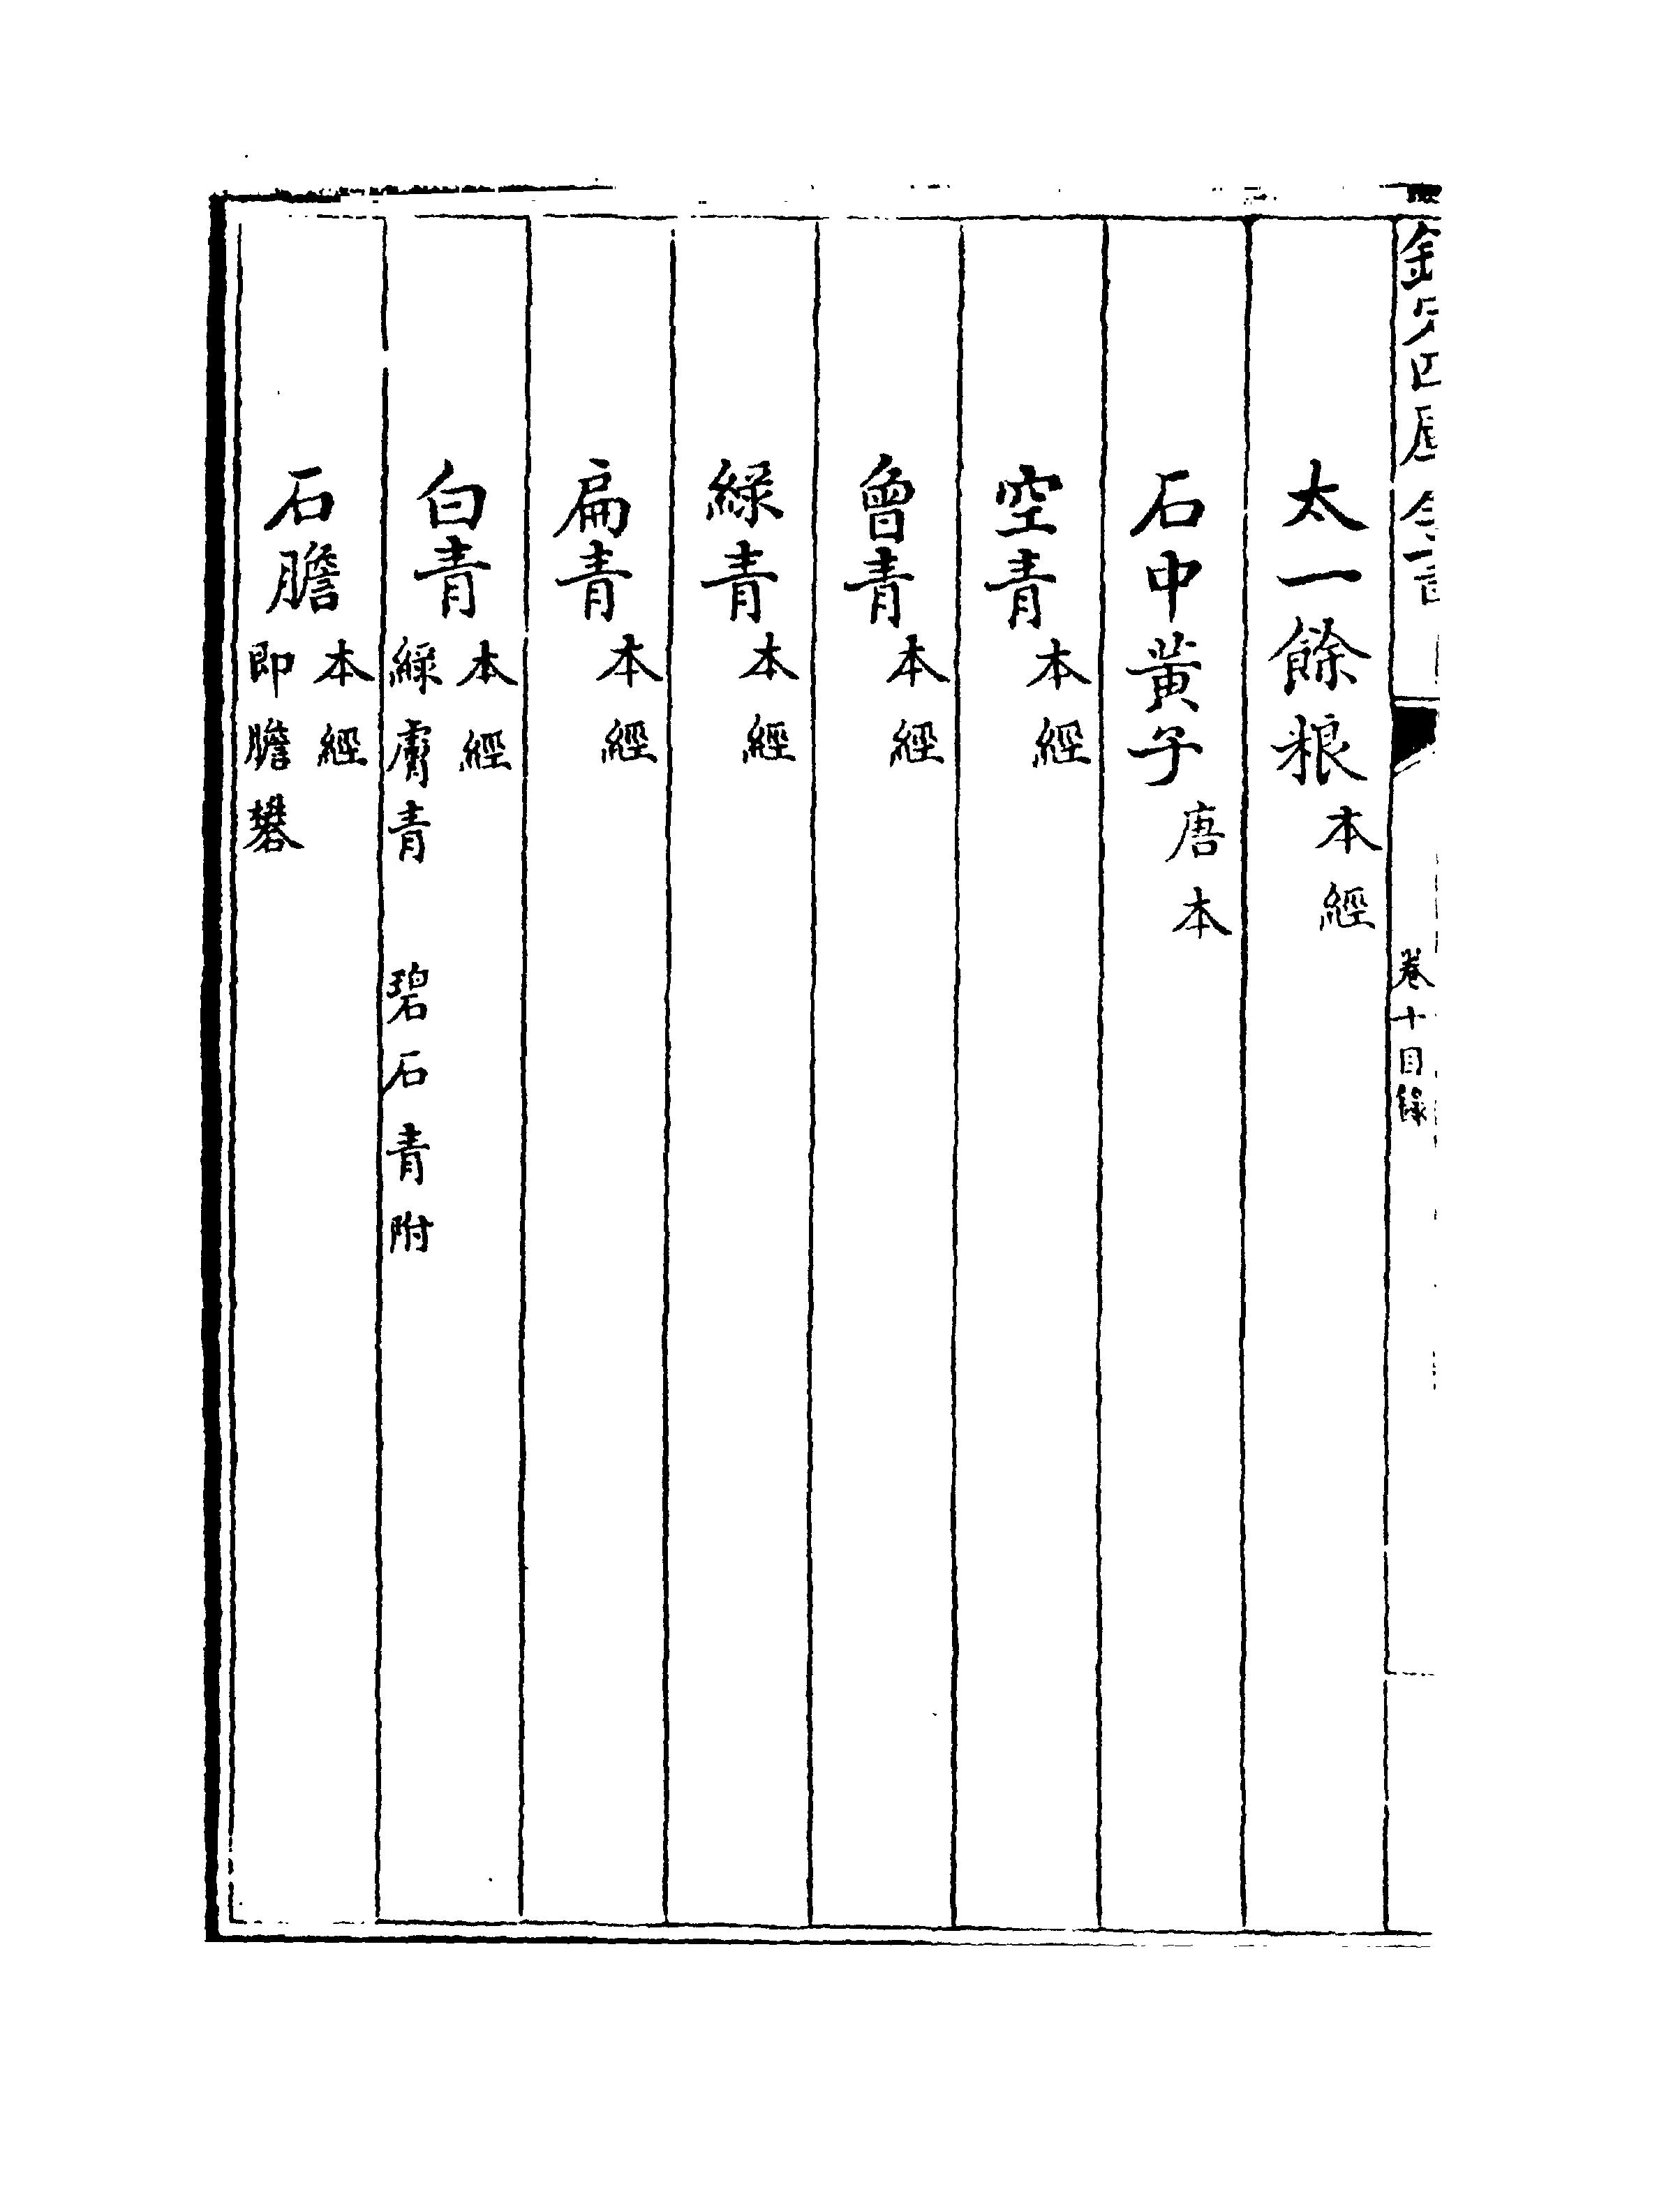 欽定四庫全書 卷十目錄
太一餘粮 本經
石中黃子 唐本
空青 本經
曾青 本經
綠青 本經
扁青 本經
白青 本經 綠膚青 碧石青附
石膽 本經 即膽礬